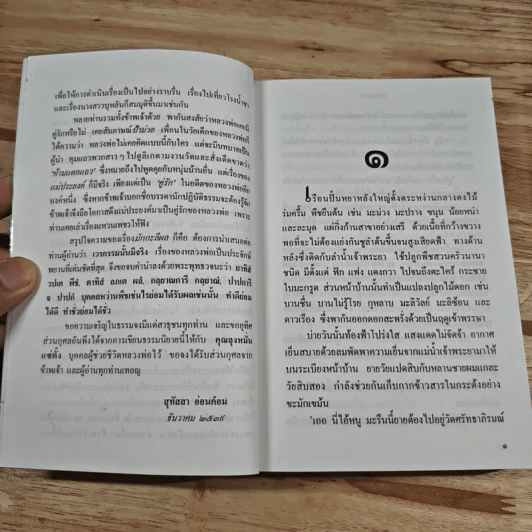 เพื่อให้การดำเนินเรื่องเป็นไปอย่างราบรื่น เรื่องไปเที่ยวโรงน้ำชา
และเรื่องนางสาวบุหลันก็สมมุติขึ้นมาเช่นกัน
หลายท่านรวมทั้งข้าพเจ้าด้วย พากันสงสัยว่าหลวงพ่อเคยมี
คู่รักหรือไม่ เคยสัมภาษณ์ป้าม่วย เพื่อนในวัยเด็กของหลวงพ่อก็
ได้ความว่า หลวงพ่อไม่เคยคิดแบบนี้กับใคร แต่จะมีบทบาทเป็น
ผู้นำ คุมแถวพวกสาวๆ ไปดูลิเกตามงานวัดและสั่งเด็ดขาดว่า
"ห้ามแตกแถว" ซึ่งหมายถึงไปพูดคุยกับหนุ่มบ้านอื่น แต่เรื่องของ
แม่ประยงค์ ก็มีจริง เพียงแต่เป็น "คู่รัก" ในอดีตของหลวงพ่ออีก
องค์หนึ่ง ซึ่งหากข้าพเจ้าบอกชื่อบรรดานักปฏิบัติธรรมจะต้องรู้จัก
ข้าพเจ้าจึงถือโอกาสดึงแม่ประยงค์มาเป็นคู่รักของหลวงพ่อ เพราะ
ท่านเคยเล่าเรื่องแหวนเพชรให้ฟัง
สรุปใจความของเรื่องมักกะลีผล ก็คือ ต้องการนำเสนอต่อ
ท่านผู้อ่านว่า เวรกรรมนั้นมีจริง เรื่องของหลวงพ่อเป็นประจักษ์
พยานที่เด่นชัดที่สุด จึงของจบคำนำลงด้วยพระพุทธวจนะว่า ยาทิสํ
วปเต พีชํ, ตาทิสํ ลภเต ผลํ, กลฺยาณการี กลฺยาณํ, ปาปการี
จ ปาปกํ บุคคลหว่านพืชเช่นไรย่อมได้รับผลเช่นนั้น ทำดีย่อม
ได้ดี ทำชั่วย่อมได้ชั่ว
ขอความเจริญในธรรมจงมีแด่สาธุชนทุกท่าน และขออุทิศ
ส่วนกุศลอันพึงได้จากการเขียนธรรมนิยายนี้ให้กับ คุณถุงหมัน
แซ่ตั้ง บุคคลผู้ช่วยชีวิตหลวงพ่อไว้ ขอจงได้รับส่วนกุศลจาก
ข้าพเจ้า และผู้อ่านทุกท่านเทอญ
สุทัสสา อ่อนค้อม
ธันวาคม ๒๕๓๕
๑
เรือนปั้นหยาหลังใหญ่ตั้งตระหง่านกลางดงไม้
ร่มครึ้ม พืชยืนต้น เช่น มะม่วง มะปราง ขนุน น้อยหน่า
และละมุด แผ่กิ่งก้านสาขาอย่างเสรี ด้วยเนื้อที่กว้างขวาง
พอที่จะไม่ต้องแย่งกันชูลำต้นขึ้นจนสูงเสียดฟ้า ทางด้าน
หลังซึ่งติดกับลำน้ำเจ้าพระยา ใช้ปลูกพืชสวนครัวนานา
ชนิด มีตั้งแต่ ฟัก แฟง แตงกวา ไปจนถึงตะไคร้ กระชาย
ใบมะกรูด ส่วนหน้าบ้านนั้นทำเป็นแปลงปลูกไม้ดอก เช่น
บานชื่น บานไม่รู้โรย กุหลาบ มะลิวัลย์ มะลิซ้อน และ
ดาวเรือง ซึ่งพากันออกดอกสะพรั่งด้วยเป็นฤดูเข้าพรรษา
บ่ายวันนั้นท้องฟ้าโปร่งใส แสงแดดไม่จัดจ้า อากาศ
เย็นสบายด้วยลมพัดพาความเย็นจากแม่น้ำเจ้าพระยามาให้
บนระเบียงหน้าบ้าน ยายวัยแปดสิบกับหลานชายผมแกละ
วัยสิบสอง กำลังช่วยกันเก็บกากข้าวสารในกระด้งอย่าง
ขะมักเขม้น
"เออ นี่ไอ้หนู มะรืนนี้ยายต้องไปอยู่วัดศรัทธาภิรมณ์
๑